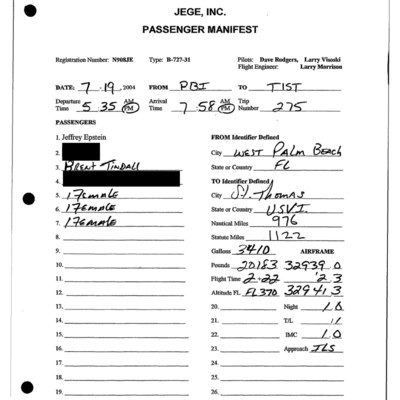 JEGE, INC.
PASSENGER MANIFEST
Registration Number: N908JE Type: B-727-31 Pilots: Dave Rodgers, Larry Visoski
Flight Engineer: Larry Morrison
DATE: 7-19, 2004 FROM PBI TO TIST
Departure Time 5:35 AM PM Arrival Time 7:58 AM PM Trip Number 275
PASSENGERS
1. Jeffrey Epstein FROM Identifier Defined
2. City WEST PALM BEACH
3. BRENT TINDALL State or Country FL
4. TO Identifier Defined
5. 1 FEMALE City St. THOMAS
6. 1 FEMALE State or Country USVI
7. 1 FEMALE Nautical Miles 976
8. Statute Miles 1122
9. Gallons 3410 AIRFRAME
10. Pounds 20183 32939.0
11. Flight Time 2:22 2.3
12. Altitude FL FL370 32941.3
13. 20. Night 1.0
14. 21. T/L 1
15. 22. IMC 1.0
16. 23. Approach ILS
17. 24.
18. 25.
19. 26.